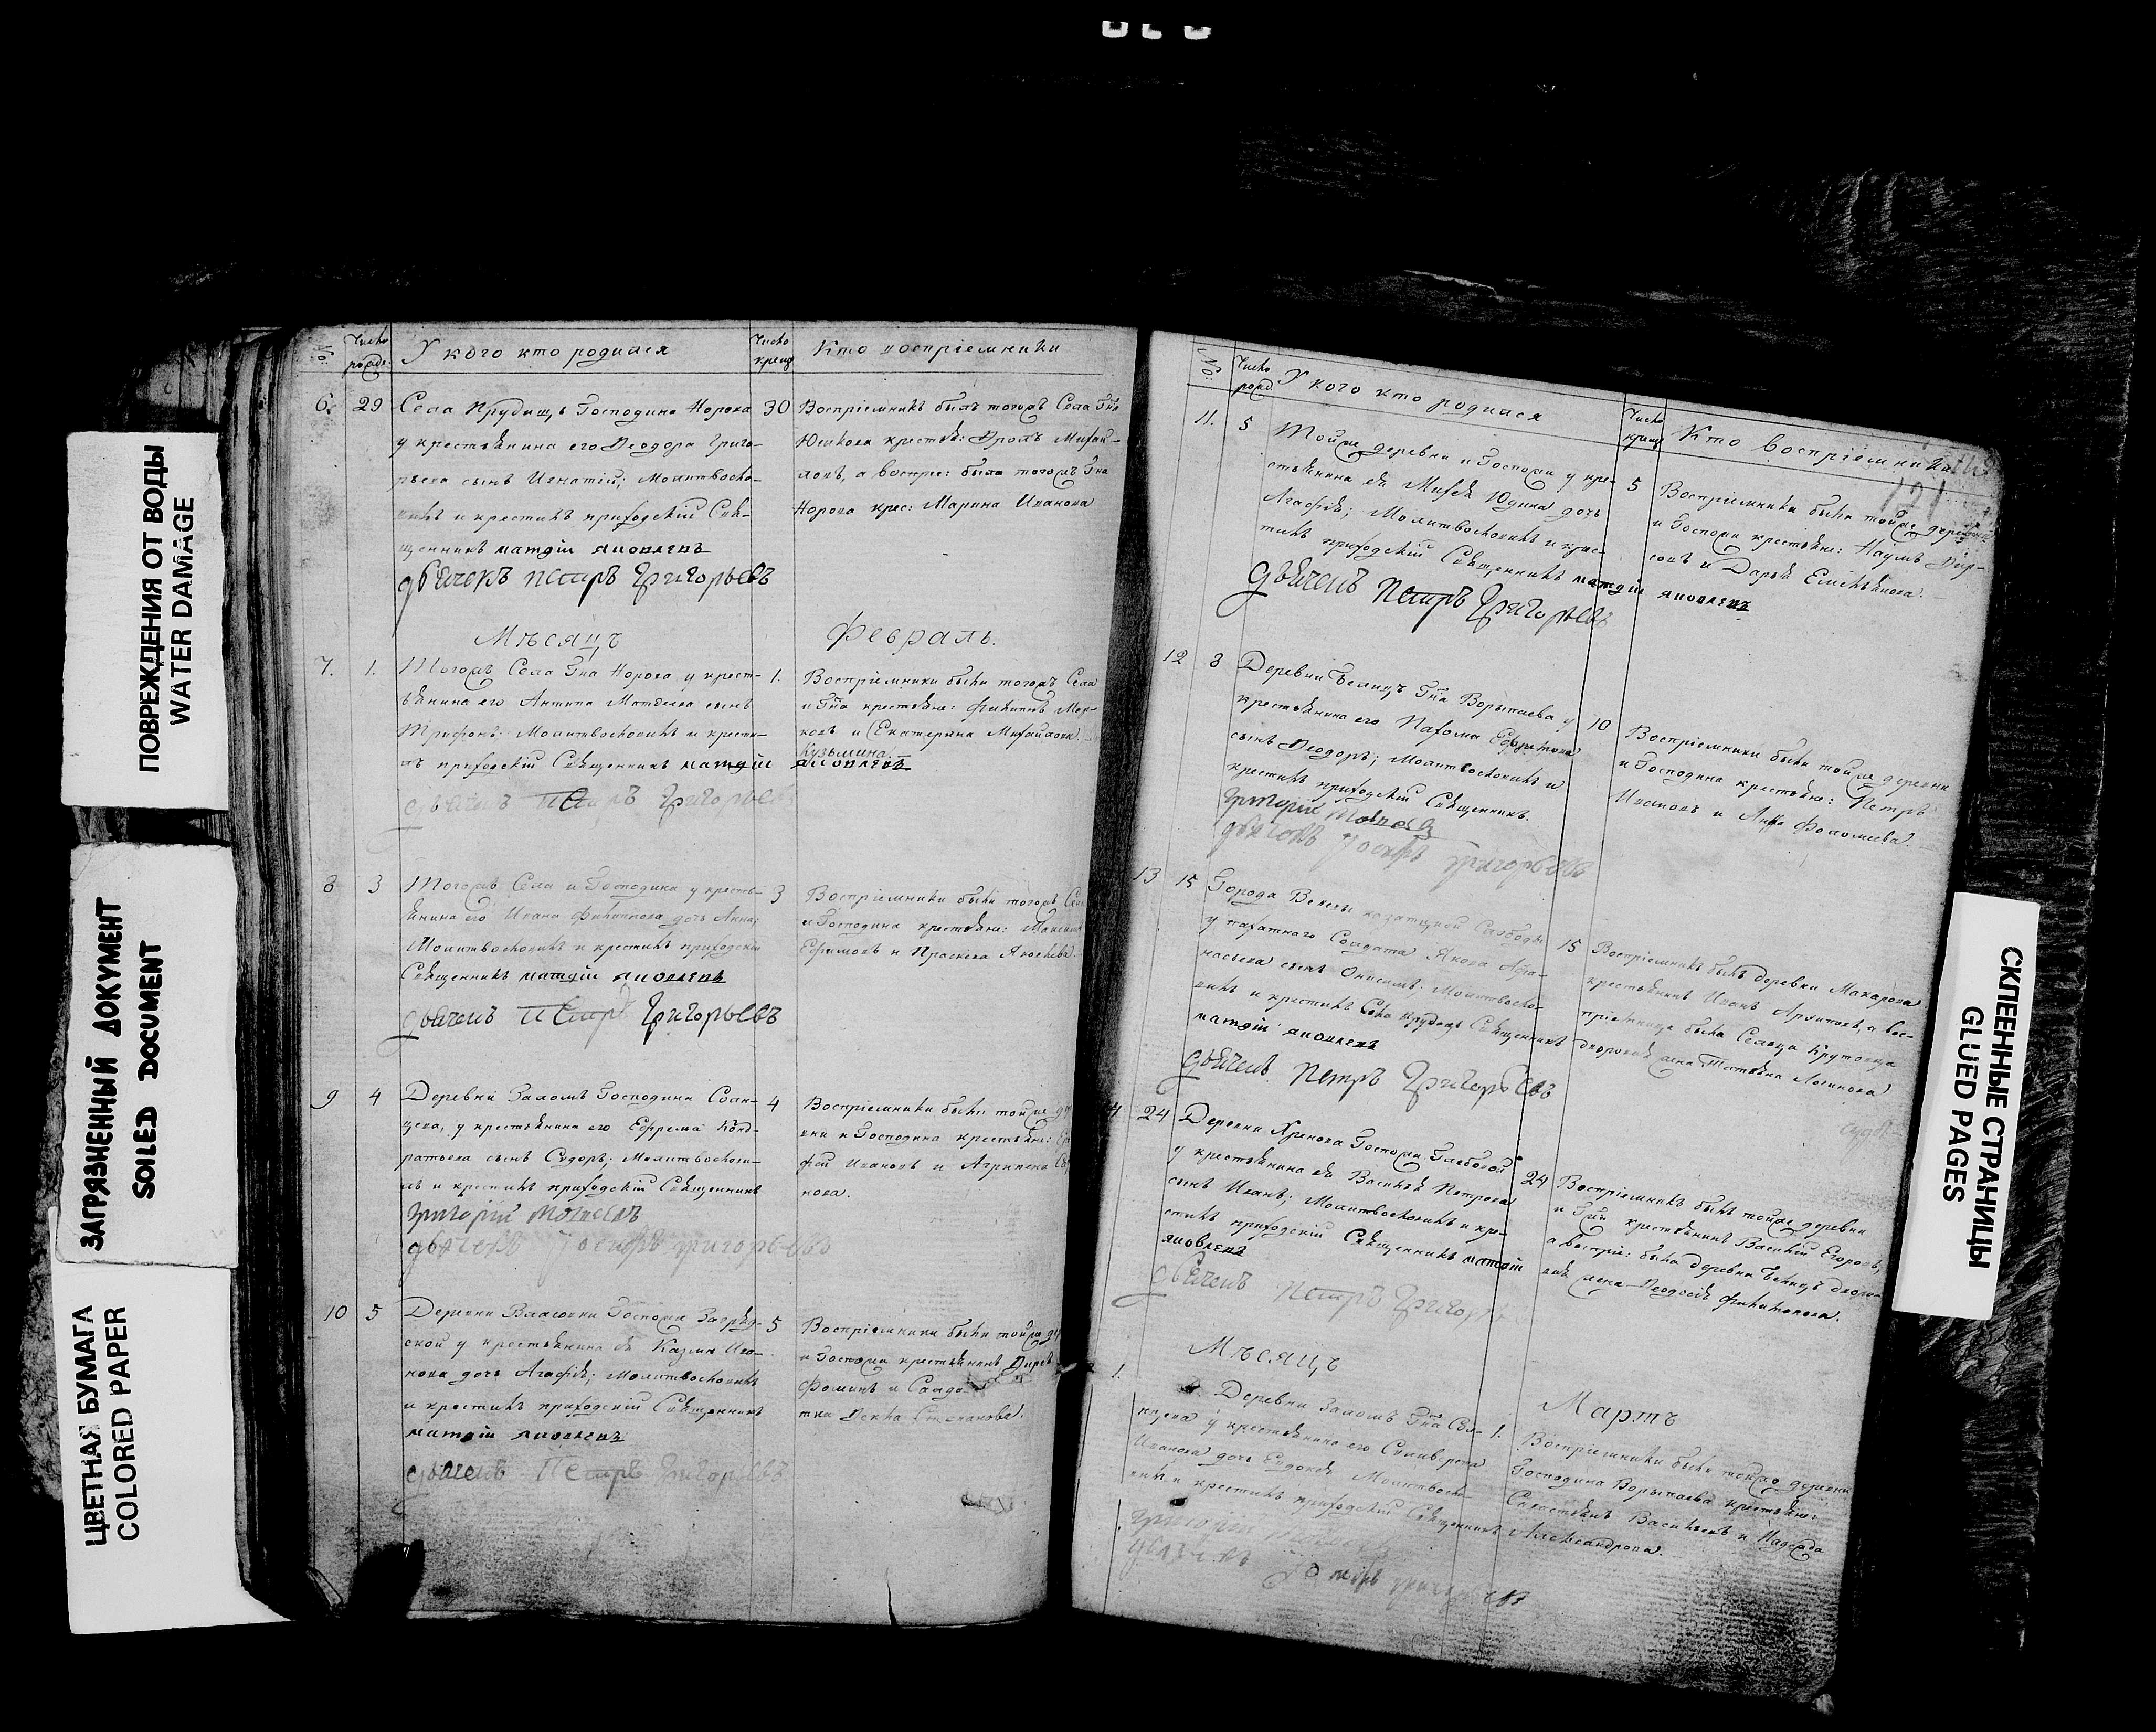 ПОВРЕЖДЕНИЯ ОТ ВОДЫ
WATER DAMAGE
ЗАГРЯЗНЕННЫЙ ДОКУМЕНТ
SOILED DOCUMENT
ЦВЕТНАЯ БУМАГА
COLORED PAPER
№
Число рожд.
У кого кто родился
Число крещ
Кто воспріемники
6.
29
Села Прудищъ Господина Норова
у крестьянина его Ѳеодора Григо-
рьева сынъ Игнатій; Молитвосло-
вилъ и крестилъ приходскій Свя-
щенникъ матѳій яковлевъ
дьячекъ петръ григорьевъ
30
Воспріемникъ былъ тогожъ Села Гна
Юшкова крестья: Михай-
ловъ, а воспре: была тогожъ Гна
Норова крес: Марина Иванова
Мѣсяцъ
Февраль.
7.
1.
Тогожъ Села Гна Норова у крест-
ьянина его Антипа Матвеева сынъ
Трифонъ: Молитвословилъ и крести-
лъ приходскій Священникъ матѳій яковлевъ
дьячекъ петръ григорьевъ
1.
Воспріемники были тогожъ Села
и Гна крестьяне: Филиппъ
и Екатерина Михайлова
Кузьмина
8
3
Тогожъ Села и Господина у кресть-
янина его Ивана Филиппова дочь Анна;
Молитвословилъ и крестилъ приходскій
Священникъ матѳій яковлевъ
дьячекъ петръ григорьевъ
3
Воспріемники были тогожъ
и Господина крестьяне:
Ефимовъ и Праскева Яковлева
9
4
Деревни Заломъ Господина Солн-
цева, у крестьянина его Ефрема Конд-
ратьева сынъ Сидоръ; Молитвослови-
лъ и крестилъ приходскій Священникъ
григорій
дьячекъ григорьевъ
4
Воспріемники были тойже
вни и Господина крестьяне:
Ивановъ и Агрипена
нова.
10
5
Деревни Власовки Госпожи
ской у крестьянина ея Казмы Ива-
нова дочь Агафія; Молитвословилъ
и крестилъ приходскій Священникъ
матѳій яковлевъ
дьячекъ петръ григорьевъ
5
Воспріемники были тойже
и Госпожи крестьянинъ
Фоминъ и Салда-
тка Ѳекла Степанова.
№
Число рожд
У кого кто родился
Число крещ
Кто воспріемники
121
11.
5
Тойже деревни и Госпожи у кре-
стьянина ея Михея Юдина дочь
Агафія; Молитвословилъ и крес-
тилъ приходскій Священникъ матѳій яковлевъ
дьячекъ петръ григорьевъ
5
Воспріемники были тойже деревни
и Госпожи крестьяне: Наумъ
и Дарья Емельянова.
12
8
Деревни Белицъ Гна Ворыпаева у
крестьянина его Пахома
сынъ Ѳеодоръ; Молитвословилъ и
крестилъ приходскій Священникъ.
григорій
дьячекъ григорьевъ
10
Воспріемники были тойже деревни
и Господина крестьяне: Петръ
Ивановъ и Анна Фоломеева.
13
15
Города Венева казатцкой Слободы
у Солдата Якова Афа-
насьева сынъ Онисимъ; Молитвосло-
вилъ и крестилъ Села Священникъ
матѳій яковлевъ
дьячекъ петръ григорьевъ
15
Воспріемникъ былъ деревни Макарова
крестьянинъ Иванъ Архиповъ, а вос-
пріемница была Сельца
жена Татьяна Логинова
24
Деревни Хрѣнова Госпожи Глебовой
у крестьянина ея Василья Петрова
сынъ Иванъ; Молитвословилъ и кре-
стилъ приходскій Священникъ матѳій
яковлевъ
дьячекъ петръ григорьевъ
24
Воспріемникъ былъ тойже деревни
и Гжи крестьянинъ Василій Егоровъ,
а воспрі: была деревни Белицъ
жена Ѳеодосія Филипова.
Мѣсяцъ
Мартъ
1.
Деревни Заломъ Гна Сол-
нцева у крестьянина его Селиверста
Иванова дочь Евдокея Молитвосло-
вилъ и крестилъ приходскій Священникъ
1.
Воспріемники были тойже деревни
Господина Ворыпаева крестьяне:
Савастьянъ Васильевъ и Надежда
Александрова.
СКЛЕЕННЫЕ СТРАНИЦЫ
GLUED PAGES